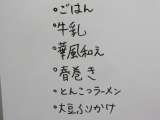 °ごはん
°牛乳
°華風和え
°春巻き
°とんこつラーメン
°大豆ふりかけ